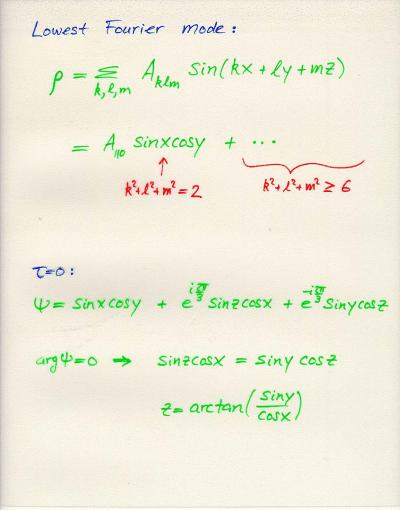 Lowest Fourier mode:
ρ = Σ A_klm Sin(kx + ly + mz)
k,l,m
= A_110 sinxcosy + ...
k²+l²+m² = 2
k²+l²+m² ≥ 6
τ=0:
Ψ = sinxcosy + e^(iπ/3) sinzcosx + e^(-iπ/3) sinycosz
argΨ=0 → sinzcosx = siny cosz
z = arctan(siny/cosx)